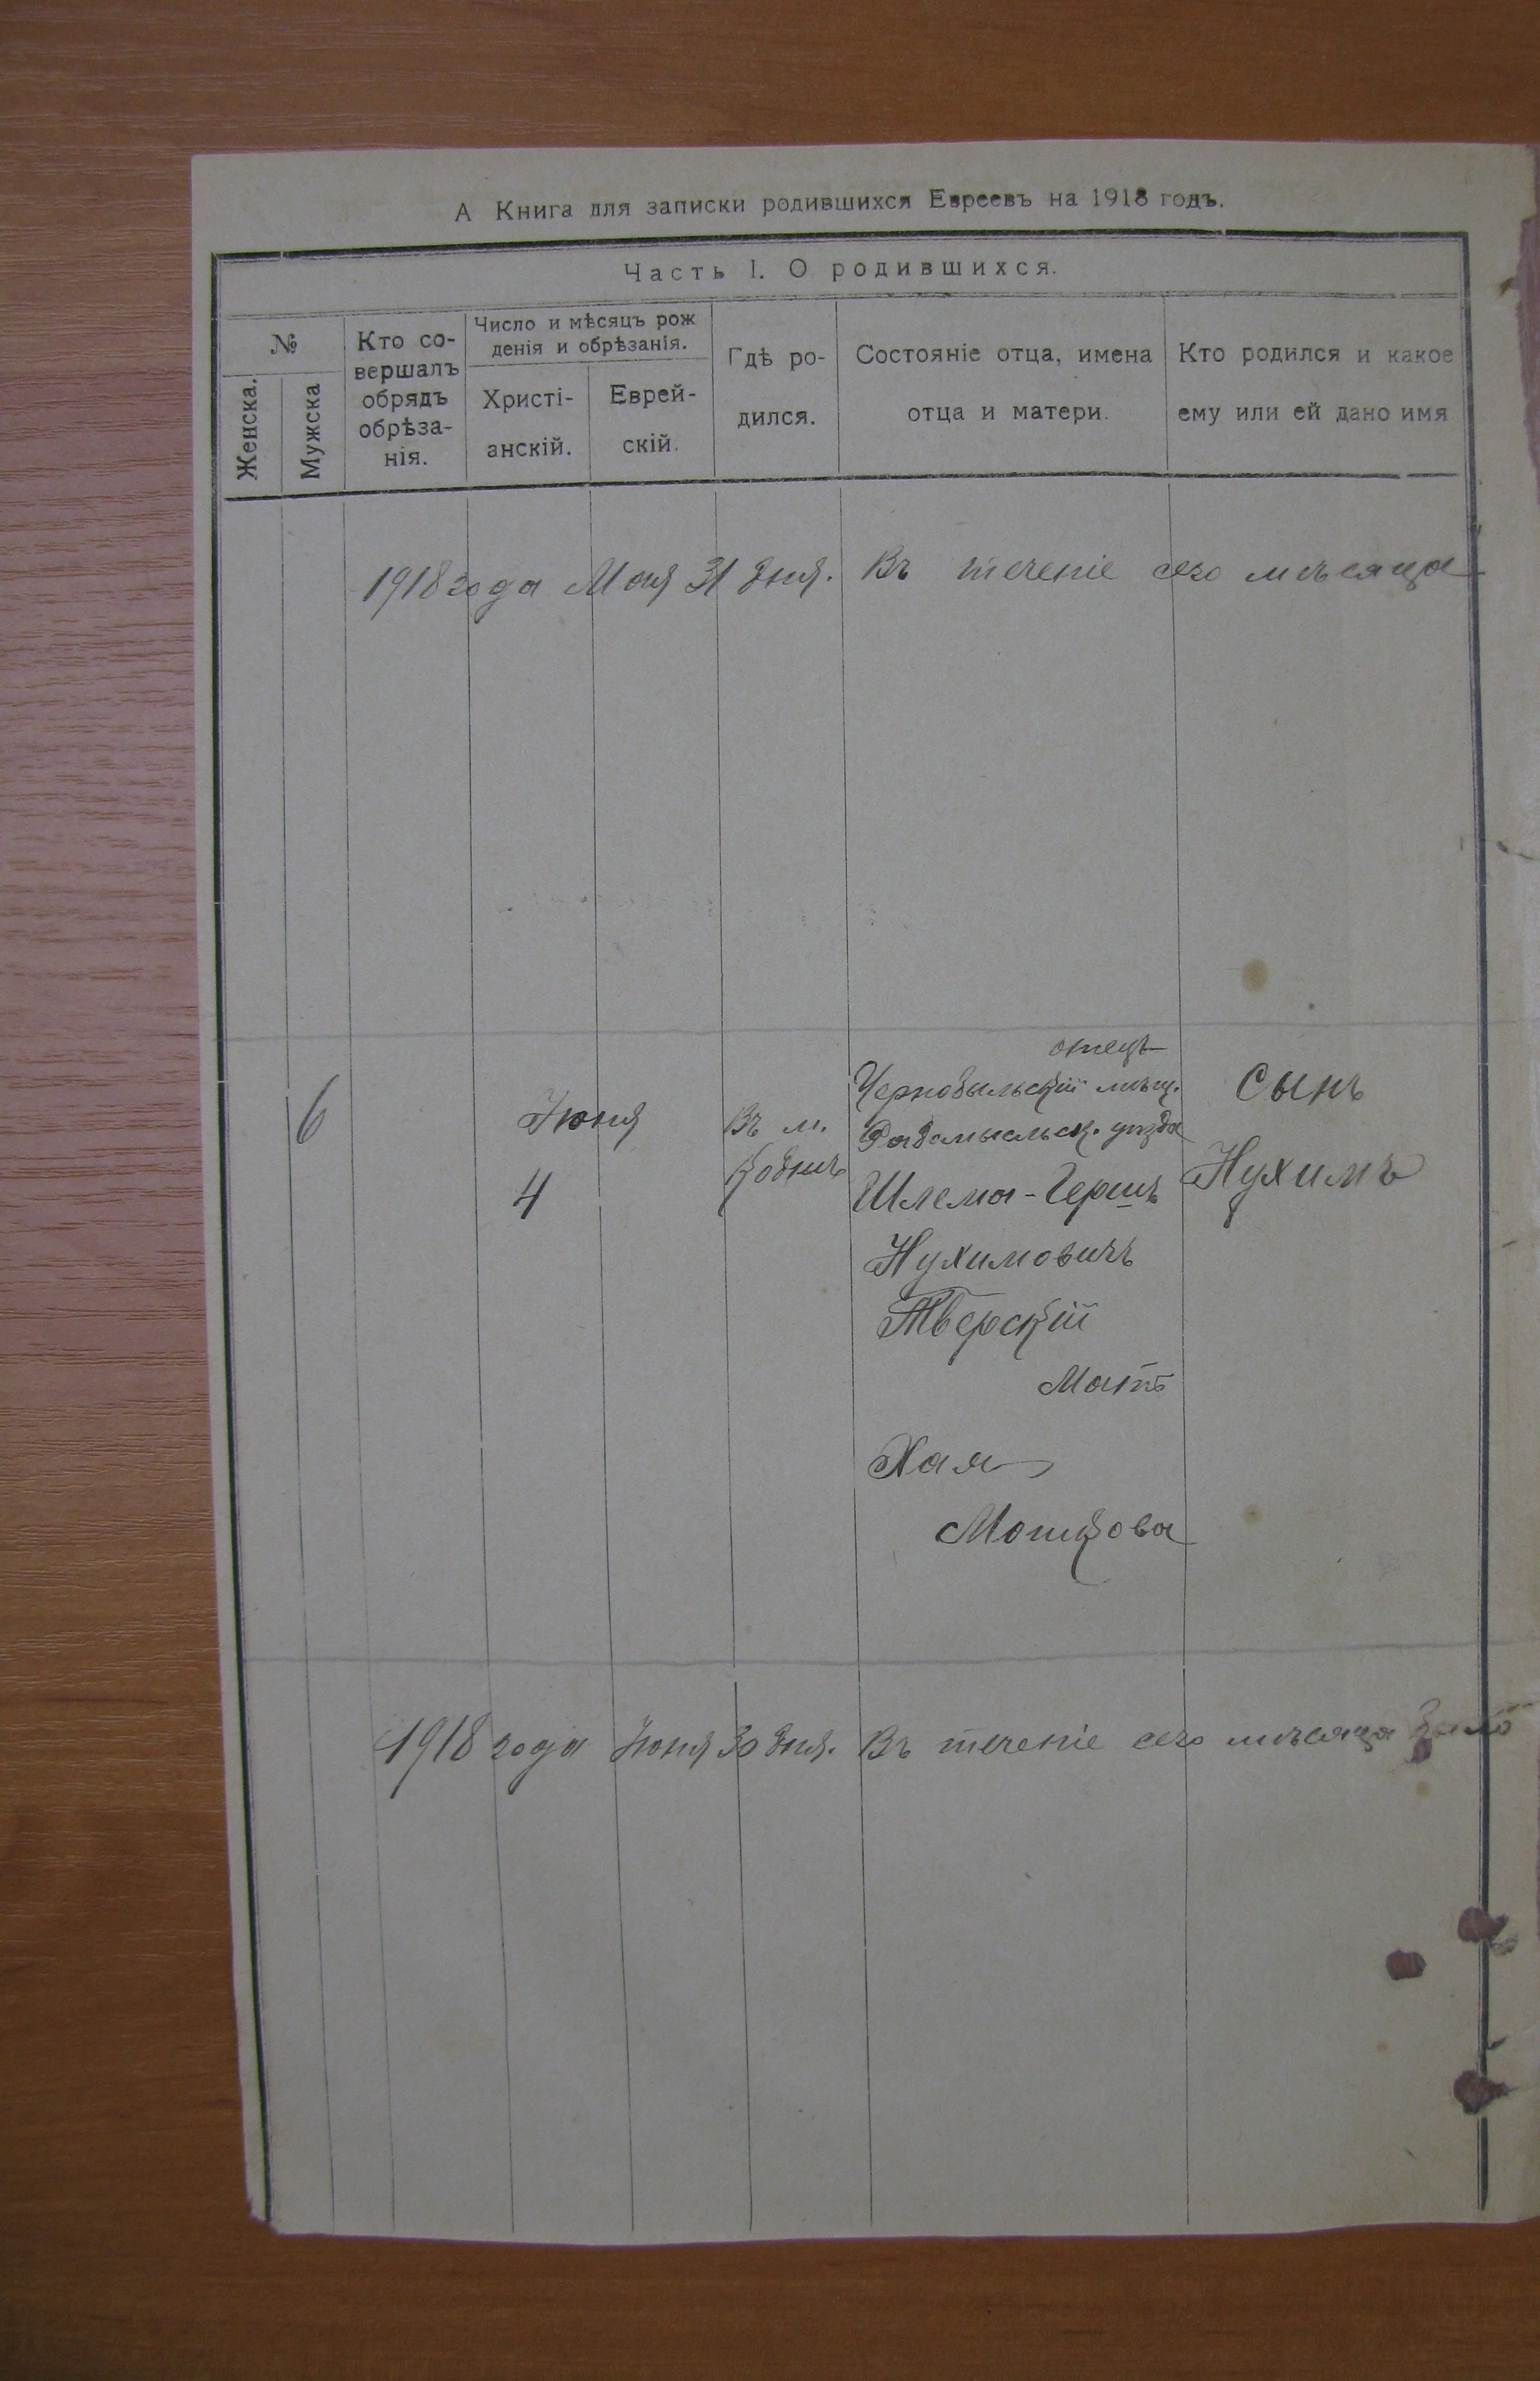 А Книга для записки родившихся Евреевъ на 1918 годъ.
Часть I. О родившихся.
№
Женска.
Мужска
Кто со-
вершалъ
обрядъ
обрѣза-
нія.
Число и мѣсяцъ рож
денія и обрѣзанія.
Христі-
анскій.
Еврей-
скій.
Гдѣ ро-
дился.
Состояніе отца, имена
отца и матери.
Кто родился и какое
ему или ей дано имя.
1918 года Мая 31 дня. Въ теченіе сего мѣсяца
6
Іюня
4
Въ м.
Кодни
отецъ
Чернобыльскій мѣщ.
Радомысльск. уѣзда
Шлема-Гершъ
Нухимовичъ
Тверскій
Мать
Хая
Мошкова
Сынъ
Нухимъ
1918 года Іюня 30 дня. Въ теченіе сего мѣсяца